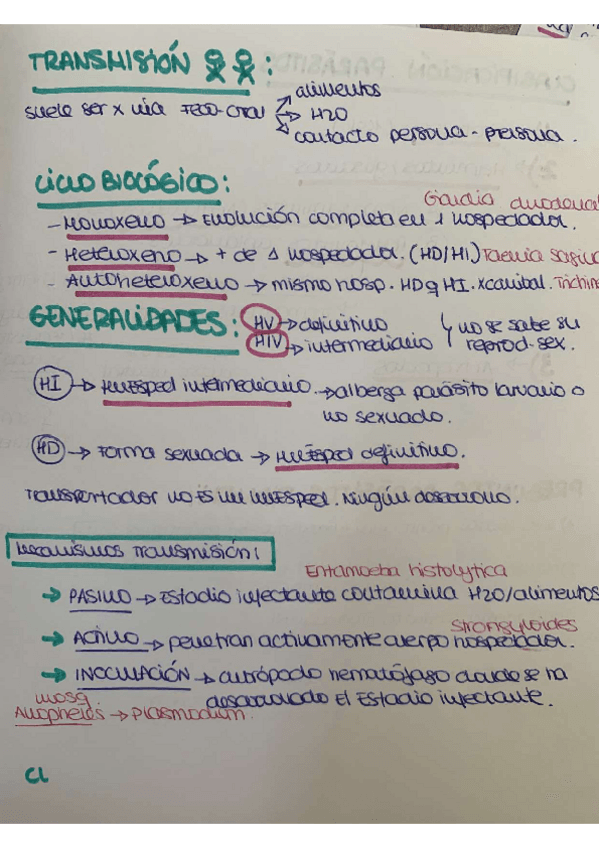 TRANSMISIÓN :
suele ser x vía FECO-ORAL → alimentos
→ H2O
→ contacto persona - persona.
CICLO BIOLÓGICO:
Giardia duodenal
- Monoxeno → Evolución completa en 1 hospedador.
- Heteroxeno → + de 1 hospedador. (HD/HI) Taenia sagina
- Autoheteroxeno → mismo hosp. HD y HI. xcanibal. Trichine
GENERALIDADES: HV → definitivo } no se sabe su
HIV → intermediario reprod. sex.
HI → HUÉSPED intermediario. → alberga parásito larvario o
no sexuado.
HD → Forma sexuada → HUÉSPED definitivo.
TRANSPORTADOR NO ES UN HUÉSPED. Ningún desarrollo.
Mecanismos Transmisión:
Entamoeba histolytica
→ PASIVO → Estadio infectante contamina H2O/alimentos
Strongyloides
→ ACTIVO → penetran activamente cuerpo hospedador.
→ INOCULACIÓN → artrópodo hematófago donde se ha
desarrollado el Estadio infectante.
mosq.
Anopheles → Plasmodium.
CL